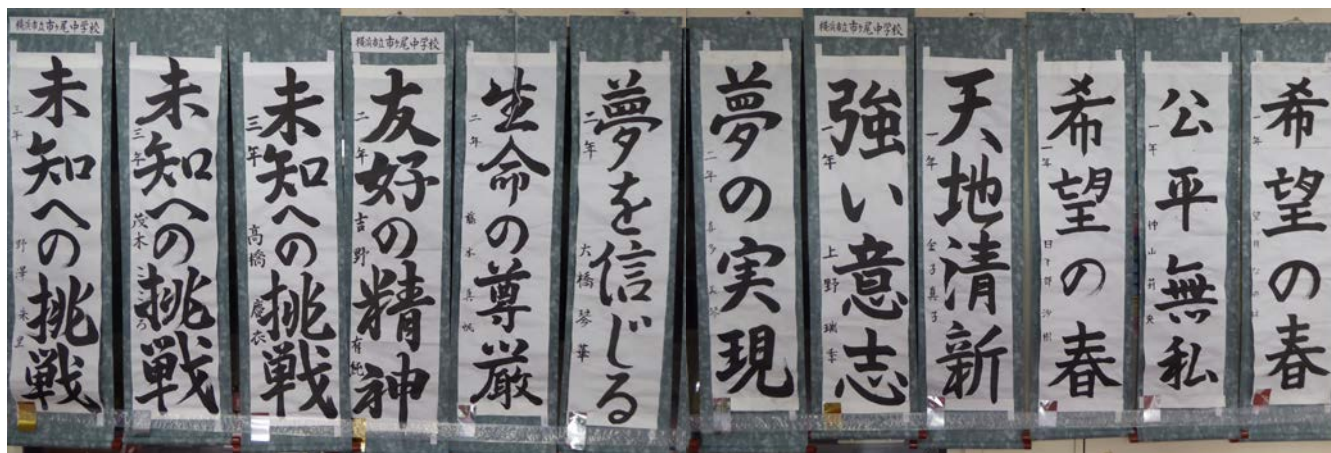 横浜市立市ヶ尾中学校
未知への挑戦
三年
未知への挑戦
三年 茂木こころ
未知への挑戦
三年 高橋慶衣
横浜市立市ヶ尾中学校
友好の精神
二年 吉野有純
生命の尊厳
二年
夢を信じる
二年 大橋琴華
夢の実現
二年
横浜市立市ヶ尾中学校
強い意志
一年 上野瑞季
天地清新
一年 金子真子
希望の春
一年
公平無私
一年
希望の春
一年